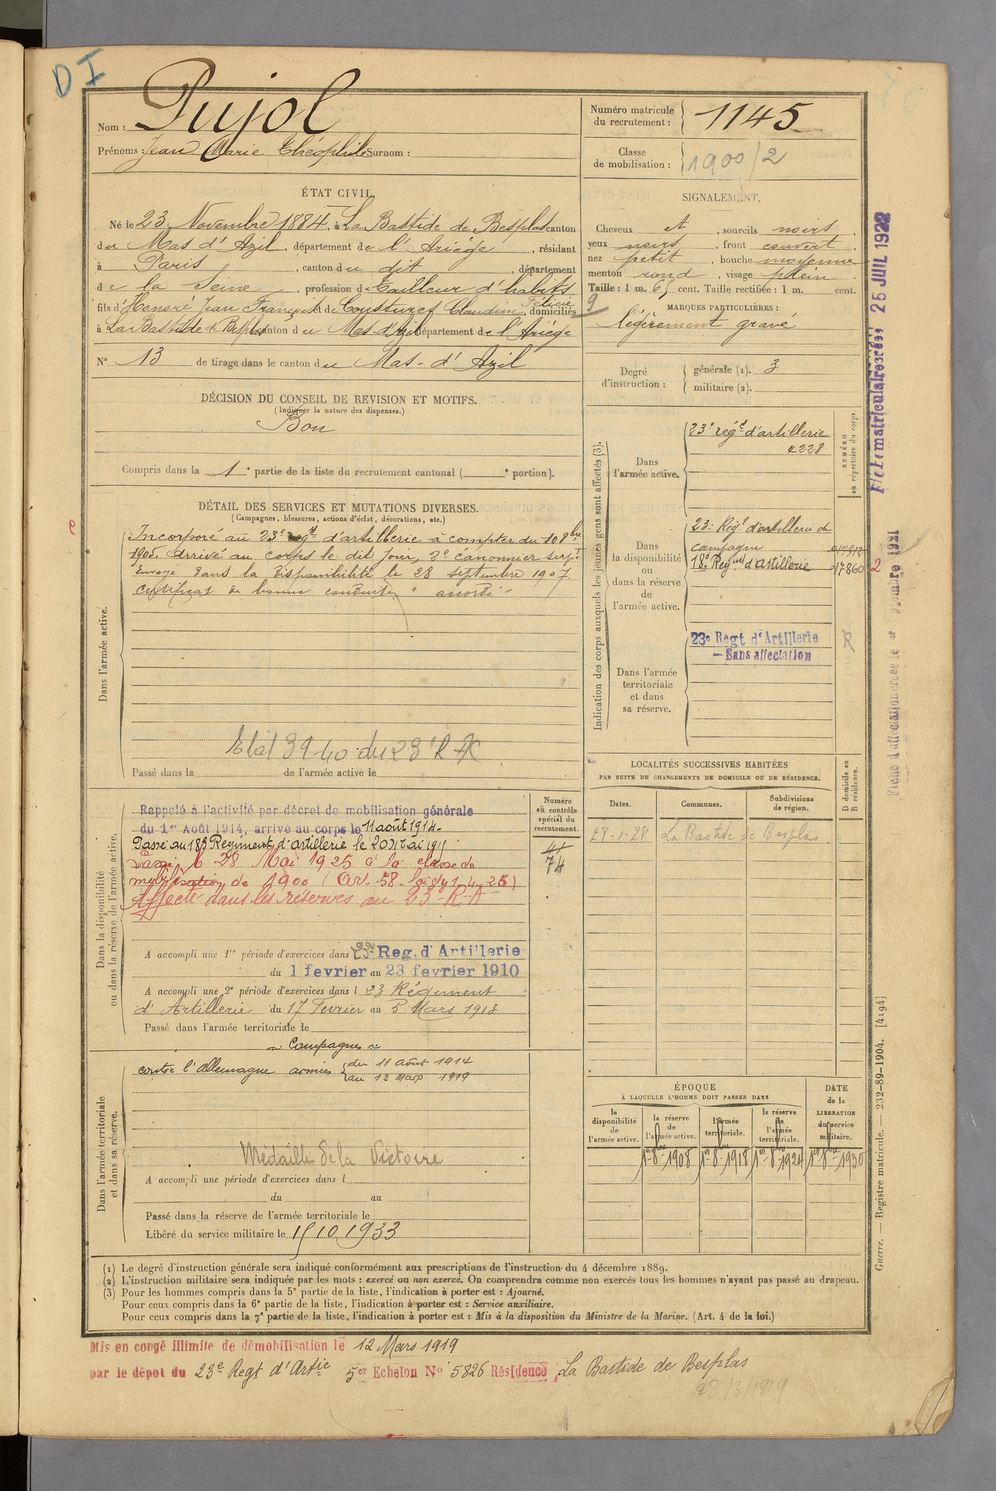 D I
Nom : Pujol
Prénoms : Jean Marie Théophile Surnom :
Numéro matricule du recrutement : 1145
Classe de mobilisation : 1900/2
ÉTAT CIVIL.
Né le 23 Novembre 1884, à La Bastide de Besplas canton
du Mas d'Azil, département de l'Ariège, résidant
à Paris, canton du dit, département
de la Seine, profession de Tailleur d'habits
fils d'Honoré Jean François et de Cousturef Claudine Félicie, domiciliés
à La Bastide de Besplas canton du Mas d'Azil département de l'Ariège
N° 13 de tirage dans le canton du Mas-d'Azil
SIGNALEMENT.
Cheveux et, sourcils noirs
yeux noirs, front couvert,
nez petit, bouche moyenne
menton rond, visage plein
Taille : 1 m. 65 cent. Taille rectifiée : 1 m. cent.
MARQUES PARTICULIÈRES :
9 légèrement gravé
Degré d'instruction : générale (1). 3
militaire (2).
DÉCISION DU CONSEIL DE REVISION ET MOTIFS.
(Indiquer la nature des dispenses.)
Bon
Compris dans la 1e partie de la liste du recrutement cantonal ( e portion).
DÉTAIL DES SERVICES ET MUTATIONS DIVERSES.
(Campagnes, blessures, actions d'éclat, décorations, etc.)
Dans l'armée active.
Incorporé au 23e régt d'artillerie à compter du 10 8bre
1905. Arrivé au corps le dit jour, 2e canonnier servt
Envoyé dans la disponibilité le 28 septembre 1907.
Certificat de bonne conduite " accordé "
Etat 3940 du 23e RA
Passé dans la de l'armée active le
Indication des corps auxquels les jeunes gens sont affectés (3).
NUMÉRO au répertoire du corps.
Dans l'armée active.
23e régt d'artillerie
4228
Dans la disponibilité ou dans la réserve de l'armée active.
23e Régt d'artillerie de
campagne 017818
18e Regiment d'artillerie 017860 2
Dans l'armée territoriale et dans sa réserve.
23e Regt d'Artillerie R
— Sans affectation
Dans la disponibilité ou dans la réserve de l'armée active.
Rappelé à l'activité par décret de mobilisation générale
du 1er Août 1914, arrive au corps le 11 août 1914.
Passé au 18e Regiment d'artillerie le 20 Mai 191
Passé le 28 Mai 1925 à la classe de
mobilisation de 1900 (Art. 58 - loi du 1-4-25)
Affecté dans les réserves au 23e R.A.
Numéro au contrôle spécial du recrutement.
41
74
A accompli une 1re période d'exercices dans le 23e Reg. d'Artillerie
du 1 fevrier au 23 fevrier 1910
A accompli une 2e période d'exercices dans l 23 Régiment
d'Artillerie du 17 Fevrier au 5 Mars 1913
Passé dans l'armée territoriale le
Campagnes
contre l'allemagne armées du 11 août 1914
au 12 Mars 1919
Dans l'armée territoriale et dans sa réserve.
Médaille de la Victoire
A accompli une période d'exercices dans l
du au
Passé dans la réserve de l'armée territoriale le
Libéré du service militaire le 15 10 1933
LOCALITÉS SUCCESSIVES HABITÉES
PAR SUITE DE CHANGEMENTS DE DOMICILE OU DE RÉSIDENCE.
Dates. Communes. Subdivisions de région. D domicile ou R résidence.
28-1-28 La Bastide de Besplas
ÉPOQUE
À LAQUELLE L'HOMME DOIT PASSER DANS
la disponibilité de l'armée active.
la réserve de l'armée active. 1er 8bre 1908
l'armée territoriale. 1er 8bre 1918
la réserve de l'armée territoriale. 1er 8bre 1924
DATE de la LIBERATION du service militaire. 1er 8bre 1930
(1) Le degré d'instruction générale sera indiqué conformément aux prescriptions de l'instruction du 4 décembre 1889.
(2) L'instruction militaire sera indiquée par les mots : exercé ou non exercé. On comprendra comme non exercés tous les hommes n'ayant pas passé au drapeau.
(3) Pour les hommes compris dans la 5e partie de la liste, l'indication à porter est : Ajourné.
Pour ceux compris dans la 6e partie de la liste, l'indication à porter est : Service auxiliaire.
Pour ceux compris dans la 7e partie de la liste, l'indication à porter est : Mis à la disposition du Ministre de la Marine. (Art. 4 de la loi.)
Mis en congé illimité de démobilisation le 12 Mars 1919
par le dépot du 23e Regt d'Artie 5er Echelon N° 5826 Résidence La Bastide de Besplas
28/3/1919
Guerre. — Registre matricule. — 232-89-1904. [4194]
25 JUIL 1922